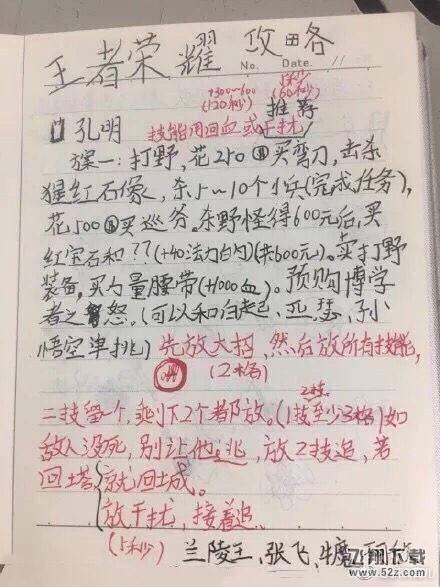 王者荣耀 攻略
No. Date. 11
+300~600 1秒
(120秒) (60秒)
推荐
孔明 技能用回血或干扰
方案一:打野,花250买弯刀,击杀
猩红石像,杀5~10个小兵(完成任务),
花500买巡务。杀野怪得600元后,买
红宝石和??(+40法力白闪)(共600元)。卖打野
装备,买力量腰带(+1000血)。预购博学
者之怒。(可以和白起、亚瑟、孙
悟空单挑)先放大招,然后放所有技能,
(2格)
2技
二技留一个,剩下2个都放。(1技至少3格)如
敌人没死,别让他逃,放2技追,若
回塔 就回城。
放干扰,接着追
(5秒) 兰陵王、张飞、
飞翔下载
www.52z.com